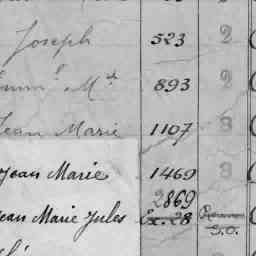 Joseph 523 2
Emm.l M.el 893 2
Jean Marie 1107 3
Jean Marie 1469 3
2869
Jean Marie Jules Ex. 28
S.O.